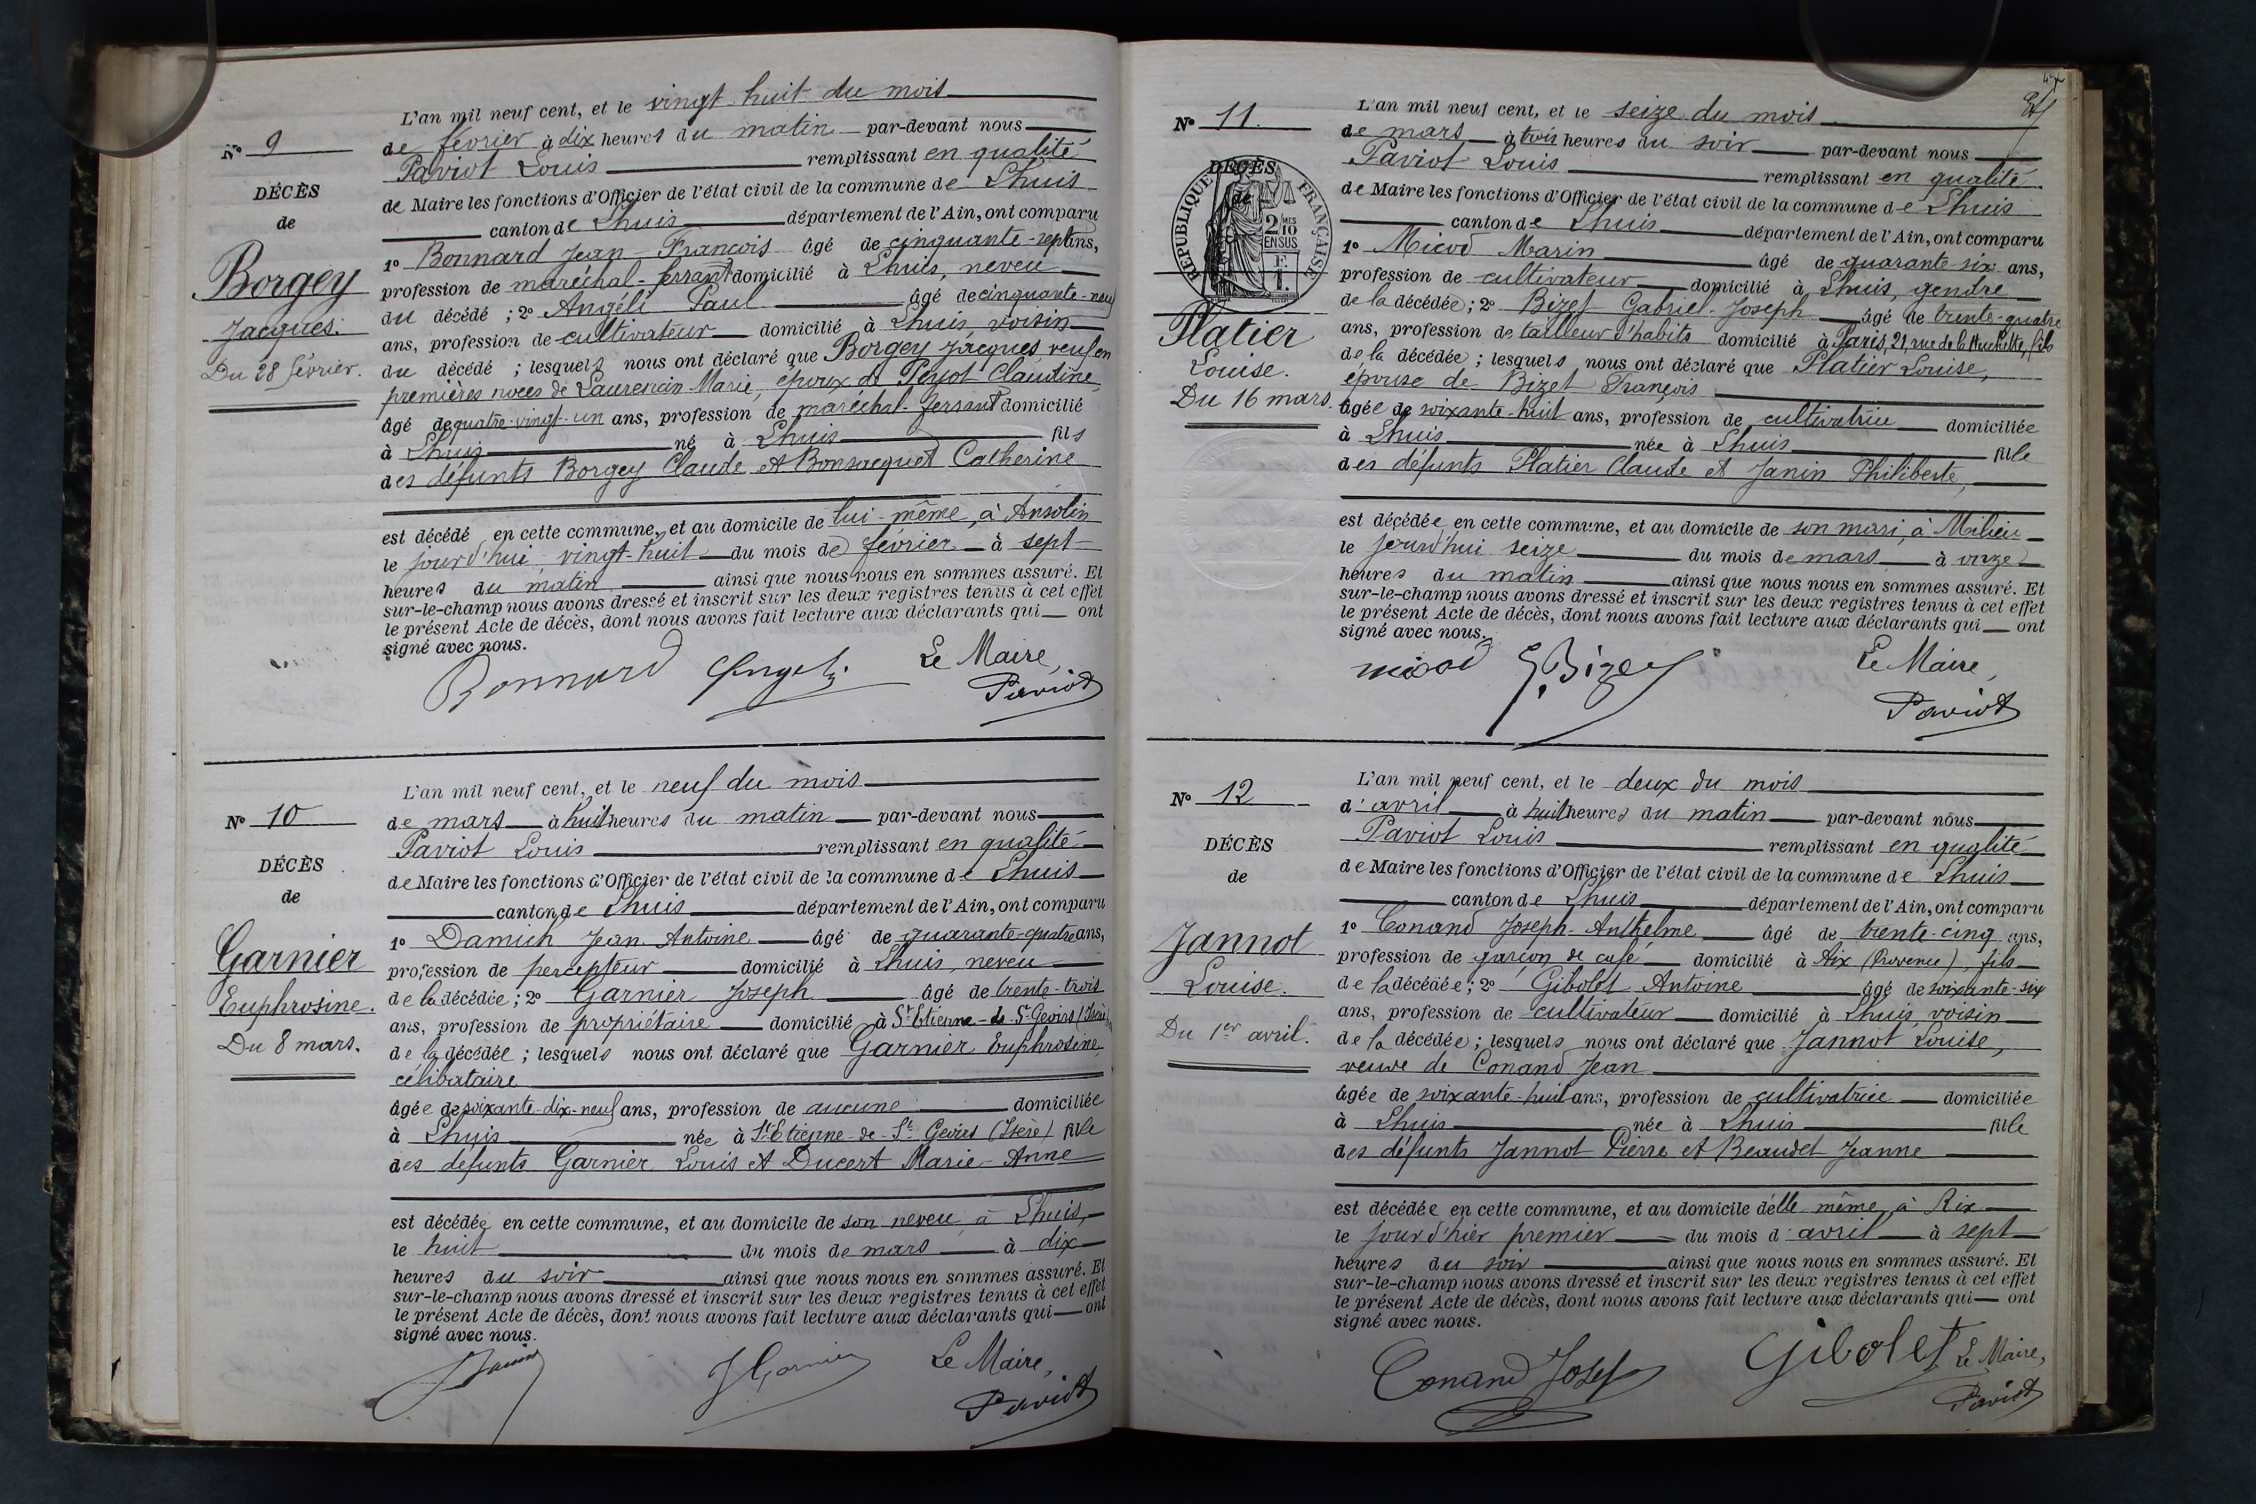 N° 9
DÉCÈS
de
Borgey
Jacques.
Du 28 février.
L'an mil neuf cent, et le vingt-huit du mois
de février à dix heures du matin par-devant nous
Paviot Louis remplissant en qualité
de Maire les fonctions d'Officier de l'état civil de la commune de Lhuis
canton de Lhuis département de l'Ain, ont comparu
1° Bonnard Jean-François âgé de cinquante-sept ans,
profession de maréchal-ferrant domicilié à Lhuis, neveu
du décédé ; 2° Angéli Paul âgé de cinquante-neuf
ans, profession de cultivateur domicilié à Lhuis, voisin
du décédé ; lesquels nous ont déclaré que Borgey Jacques, veuf en
premières noces de Laurencin Marie, époux de Peysot Claudine,
âgé de quatre-vingt-un ans, profession de maréchal-ferrant domicilié
à Lhuis né à Lhuis fils
des défunts Borgey Claude et Bonsacquet Catherine
est décédé en cette commune, et au domicile de lui-même, à Ansolin
le jourd'hui vingt-huit du mois de février à sept
heures du matin ainsi que nous nous en sommes assuré. Et
sur-le-champ nous avons dressé et inscrit sur les deux registres tenus à cet effet
le présent Acte de décès, dont nous avons fait lecture aux déclarants qui ont
signé avec nous.
Bonnard Angeli Le Maire,
Paviot
N° 10
DÉCÈS
de
Garnier
Euphrosine.
Du 8 mars.
L'an mil neuf cent, et le neuf du mois
de mars à huit heures du matin par-devant nous
Paviot Louis remplissant en qualité
de Maire les fonctions d'Officier de l'état civil de la commune de Lhuis
canton de Lhuis département de l'Ain, ont comparu
1° Damich Jean Antoine âgé de quarante-quatre ans,
profession de percepteur domicilié à Lhuis, neveu
de la décédée ; 2° Garnier Joseph âgé de trente-trois
ans, profession de propriétaire domicilié à St Etienne-de-St-Geoirs (Isère)
de la décédée ; lesquels nous ont déclaré que Garnier Euphrosine,
célibataire
âgée de soixante-dix-neuf ans, profession de aucune domiciliée
à Lhuis née à St Etienne-de-St Geoirs (Isère) fille
des défunts Garnier Louis et Ducert Marie-Anne
est décédée en cette commune, et au domicile de son neveu à Lhuis,
le huit du mois de mars à dix
heures du soir ainsi que nous nous en sommes assuré. Et
sur-le-champ nous avons dressé et inscrit sur les deux registres tenus à cet effet
le présent Acte de décès, dont nous avons fait lecture aux déclarants qui ont
signé avec nous.
J Garnier Le Maire,
Paviot
N° 11.
DÉCÈS
de
RÉPUBLIQUE FRANÇAISE
2/10 MES
EN SUS
F.
1.
Platier
Louise.
Du 16 mars.
L'an mil neuf cent, et le seize du mois
de mars à trois heures du soir par-devant nous
Paviot Louis remplissant en qualité
de Maire les fonctions d'Officier de l'état civil de la commune de Lhuis
canton de Lhuis département de l'Ain, ont comparu
1° Micod Marin âgé de quarante-six ans,
profession de cultivateur domicilié à Lhuis, gendre
de la décédée ; 2° Bizet Gabriel-Joseph âgé de trente-quatre
ans, profession de tailleur d'habits domicilié à Paris, 21, rue de la Huchette, fils
de la décédée ; lesquels nous ont déclaré que Platier Louise,
épouse de Bizet François
âgée de soixante-huit ans, profession de cultivatrice domiciliée
à Lhuis née à Lhuis fille
des défunts Platier Claude et Janin Philiberte,
est décédée en cette commune, et au domicile de son mari, à Milieu
le jourd'hui seize du mois de mars à onze
heures du matin ainsi que nous nous en sommes assuré. Et
sur-le-champ nous avons dressé et inscrit sur les deux registres tenus à cet effet
le présent Acte de décès, dont nous avons fait lecture aux déclarants qui ont
signé avec nous.
micod G. Bizet Le Maire,
Paviot
N° 12
DÉCÈS
de
Jannot
Louise.
Du 1er avril.
L'an mil neuf cent, et le deux du mois
d'avril à huit heures du matin par-devant nous
Paviot Louis remplissant en qualité
de Maire les fonctions d'Officier de l'état civil de la commune de Lhuis
canton de Lhuis département de l'Ain, ont comparu
1° Conand Joseph-Anthelme âgé de trente-cinq ans,
profession de garçon de café domicilié à Aix (Provence), fils
de la décédée ; 2° Gibolet Antoine âgé de soixante-six
ans, profession de cultivateur domicilié à Lhuis voisin
de la décédée ; lesquels nous ont déclaré que Jannot Louise,
veuve de Conand Jean
âgée de soixante-huit ans, profession de cultivatrice domiciliée
à Lhuis née à Lhuis fille
des défunts Jannot Pierre et Beaudet Jeanne
est décédée en cette commune, et au domicile d'elle même, à Rix
le jour d'hier premier du mois d'avril à sept
heures du soir ainsi que nous nous en sommes assuré. Et
sur-le-champ nous avons dressé et inscrit sur les deux registres tenus à cet effet
le présent Acte de décès, dont nous avons fait lecture aux déclarants qui ont
signé avec nous.
Conand Josef Gibolet Le Maire,
Paviot